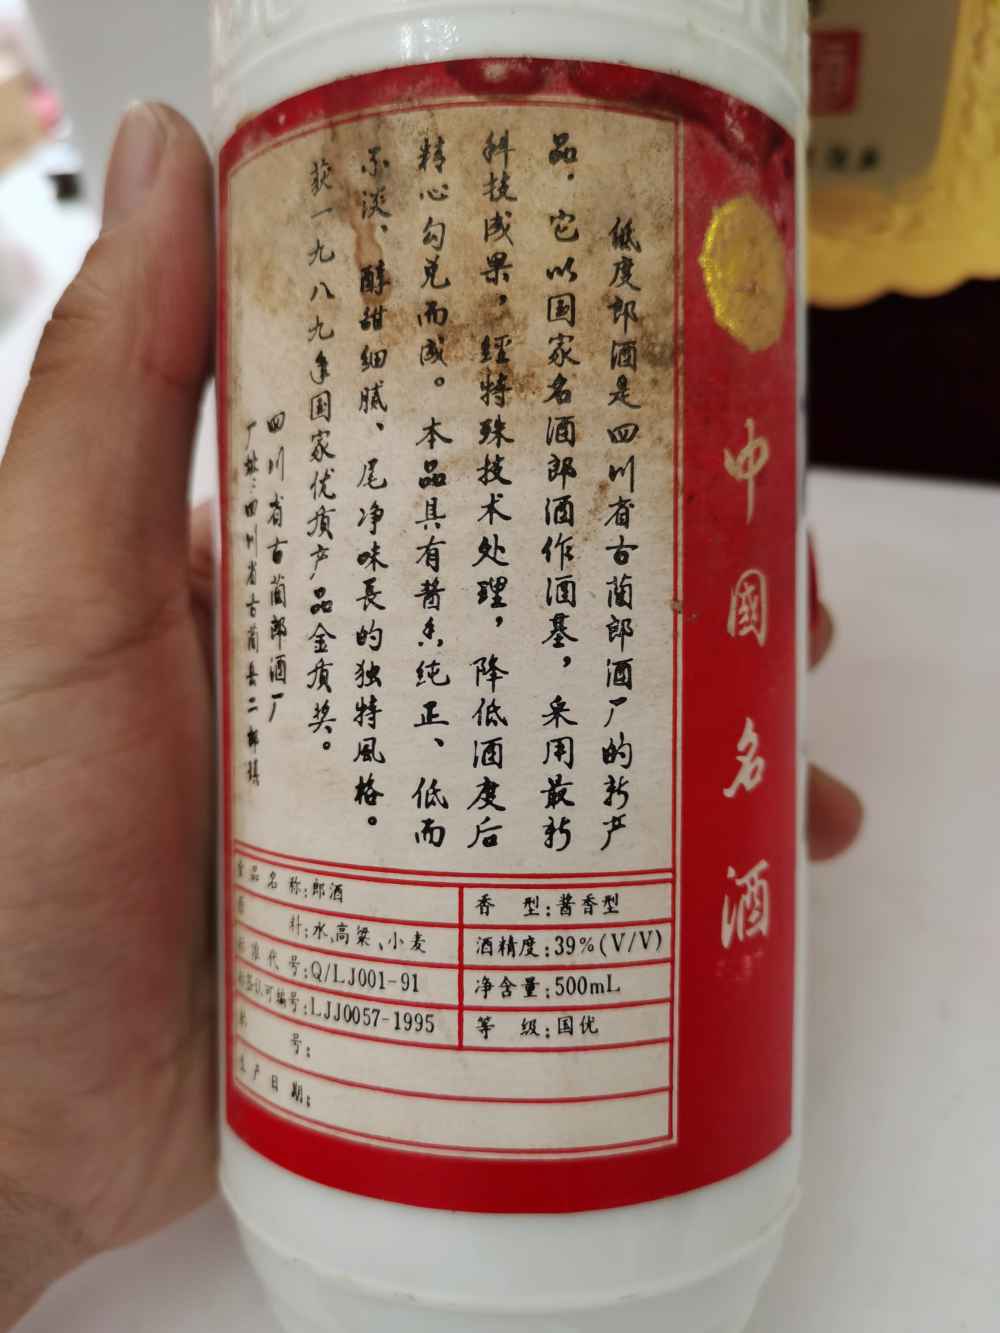 低度郎酒是四川省古蔺郎酒厂的新产
品．它以国家名酒郎酒作酒基，采用最新
科技成果，经特殊技术处理，降低酒度后
精心勾兑而成。本品具有酱香纯正、低而
不淡、醇甜细腻、尾净味長的独特風格。
获一九八九年国家优质产品金质奖。
四川省古蔺郎酒厂
厂址：四川省古蔺县二郎镇
食品名称：郎酒
原料：水、高粱、小麦
标准代号：Q/LJ001-91
标签认可编号：LJJ0057-1995
批号：
生产日期：
香型：酱香型
酒精度：39%(V/V)
净含量：500mL
等级：国优
中國名酒